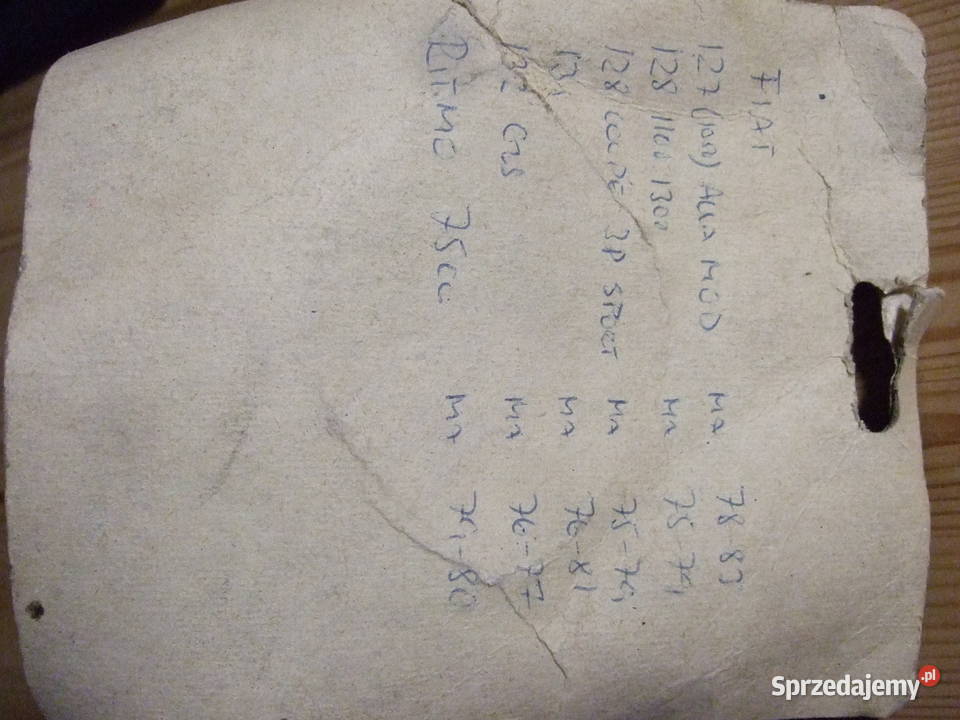 FIAT
127 (1050) ALLA MOD MA 78-83
128 1100 1300 MA 75-79
128 COUPÉ 3P SPORT MA 75-79
131 MA 76-81
132 GLS MA 76-77
RITMO 75CL MA 79-80
Sprzedajemy.pl